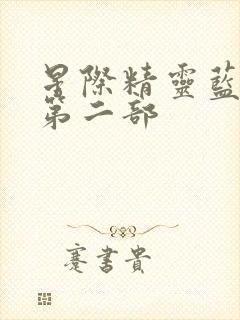 星際精靈藍
第二部
蹇書貴